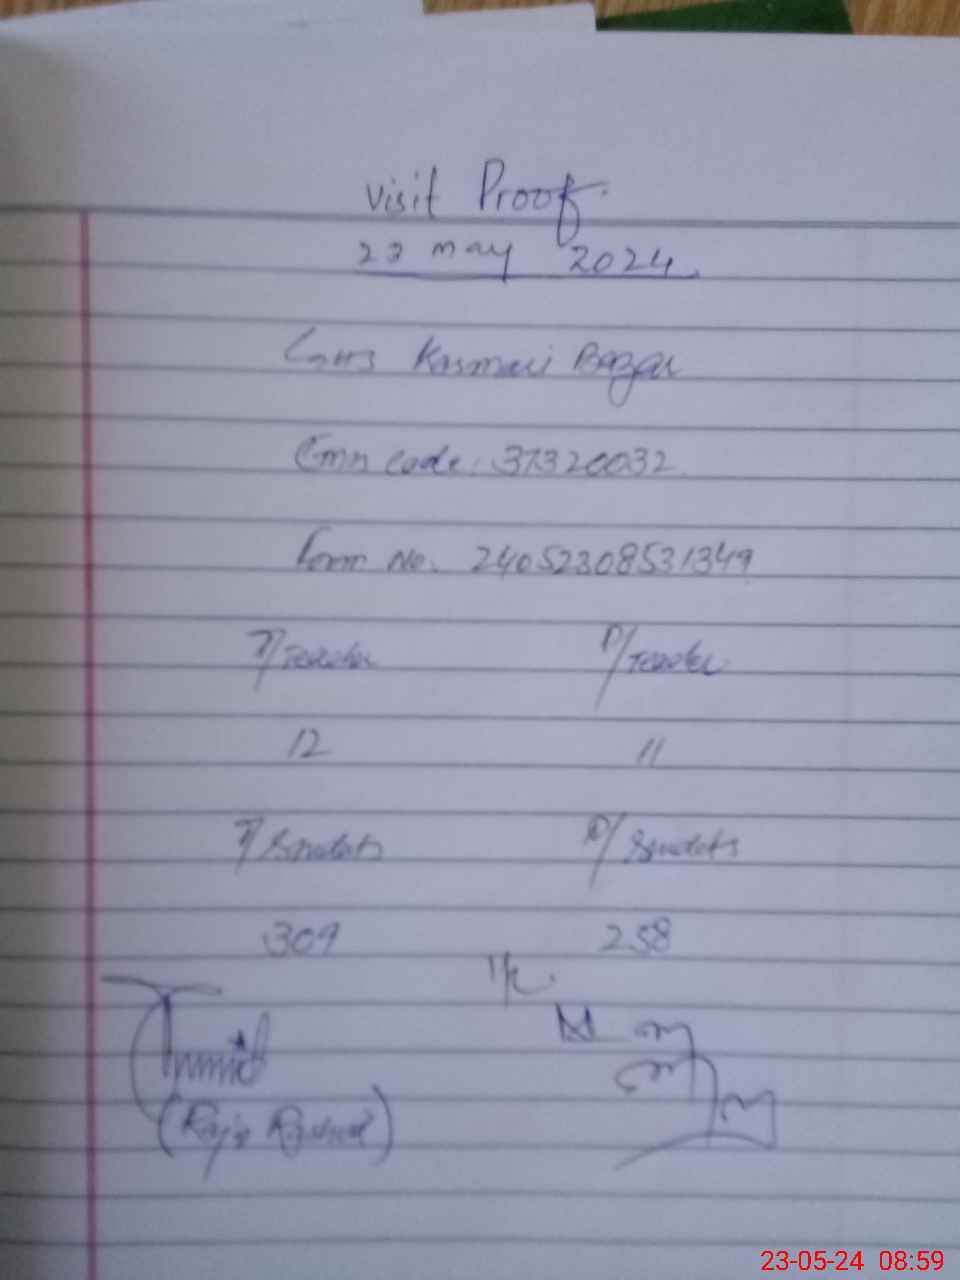 Visit Proof.
23 may 2024.
GHS Kasmari Bazar
Emn Code: 37320032.
Form No. 24052308531349
T/Teacher P/Teacher
12 11
T/Students P/Students
309 258
I/C.
23-05-24 08:59